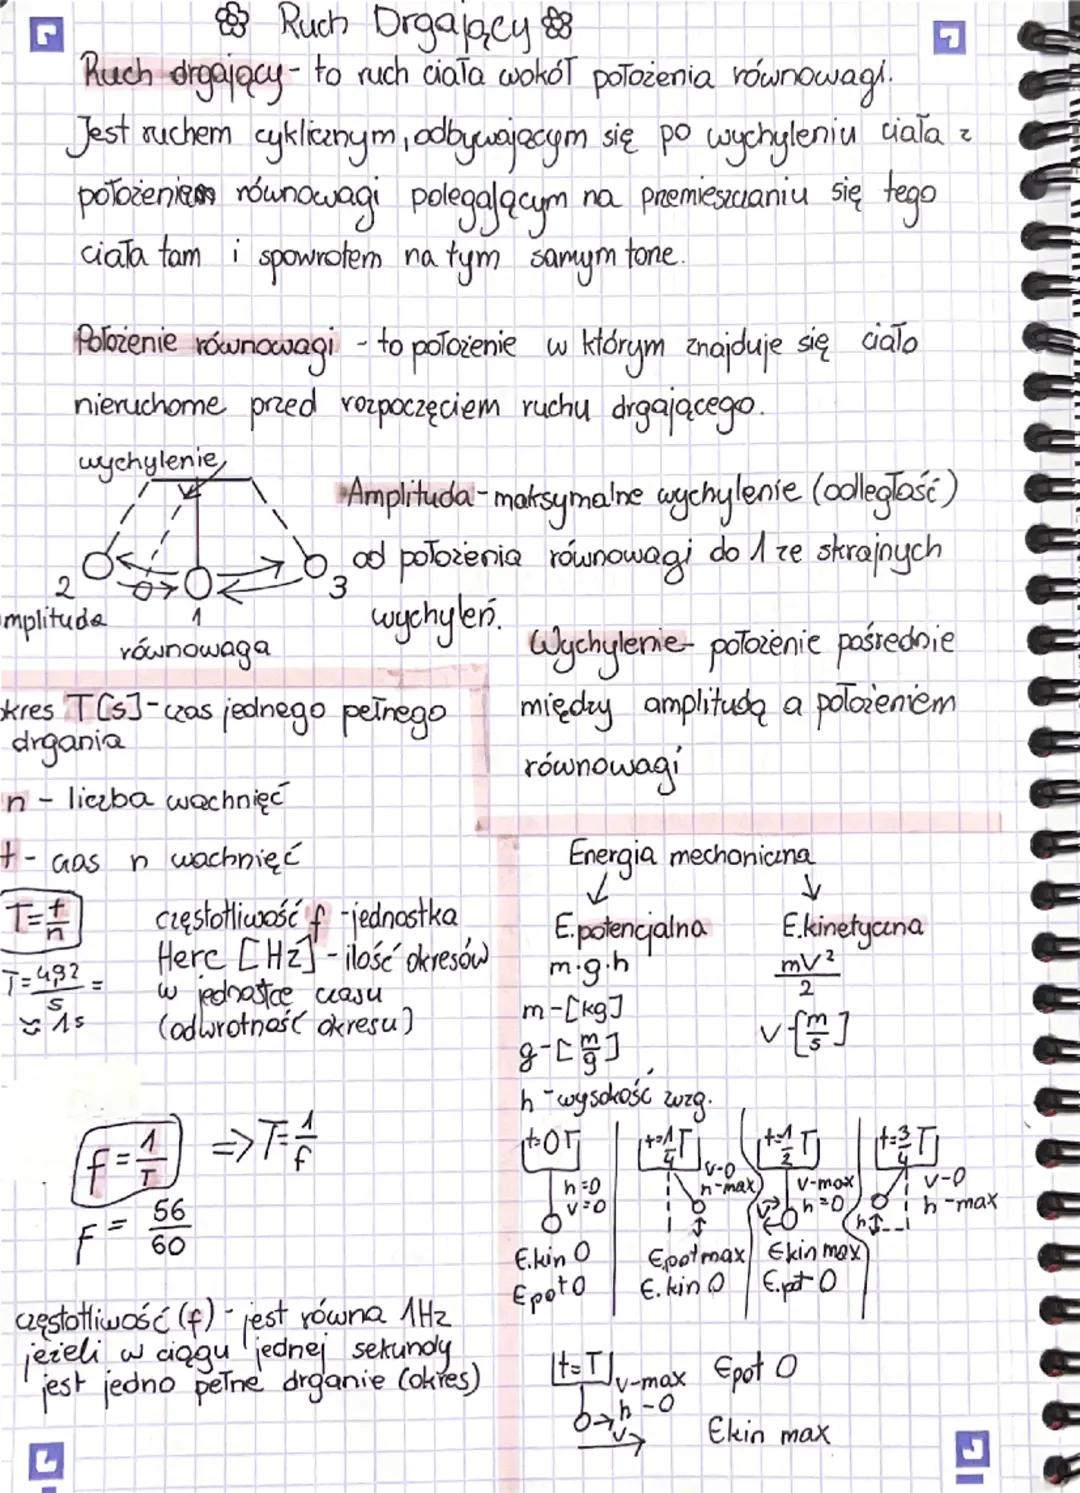 Ruch Drgający
Ruch drgający - to ruch ciała wokół położenia równowagi.
Jest ruchem cyklicznym, odbywającym się po wychyleniu ciała z
położeniem równowagi polegającym na przemieszczaniu się tego
ciała tam i spowrotem na tym samym torze.
Położenie równowagi - to położenie w którym znajduje się ciało
nieruchome przed rozpoczęciem ruchu drgającego.
wychylenie
Amplituda - maksymalne wychylenie (odległość)
od położenia równowagi do 1 ze skrajnych
wychyleń.
2
1
3
mplituda
równowaga
Wychylenie - położenie pośrednie
między amplitudą a położeniem
równowagi
kres T[s] - czas jednego pełnego
drgania
n - liczba wachnięć
t - czas n wachnięć
T = t/n
T = 4,92/5 =
≈ 1s
częstotliwość f - jednostka
Herc [Hz] - ilość okresów
w jednostce czasu
(odwrotność okresu)
f = 1/T => T = 1/f
F = 56/60
częstotliwość (f) - jest równa 1Hz
jeżeli w ciągu jednej sekundy
jest jedno pełne drganie (okres)
Energia mechaniczna
E.potencjalna
m·g·h
m - [kg]
g - [m/g]
h - wysokość wzg.
E.kinetyczna
mV²/2
v - [m/s]
t=0T
h=0
v=0
E.kin 0
Epot 0
t=1/4 T
v-0
h-max
Epot max
E.kin 0
t=1/2 T
v-max
h=0
v
Ekin max
E.pot 0
t=3/4 T
v-0
h-max
h
t=T
v-max
h-0
v
Epot 0
Ekin max